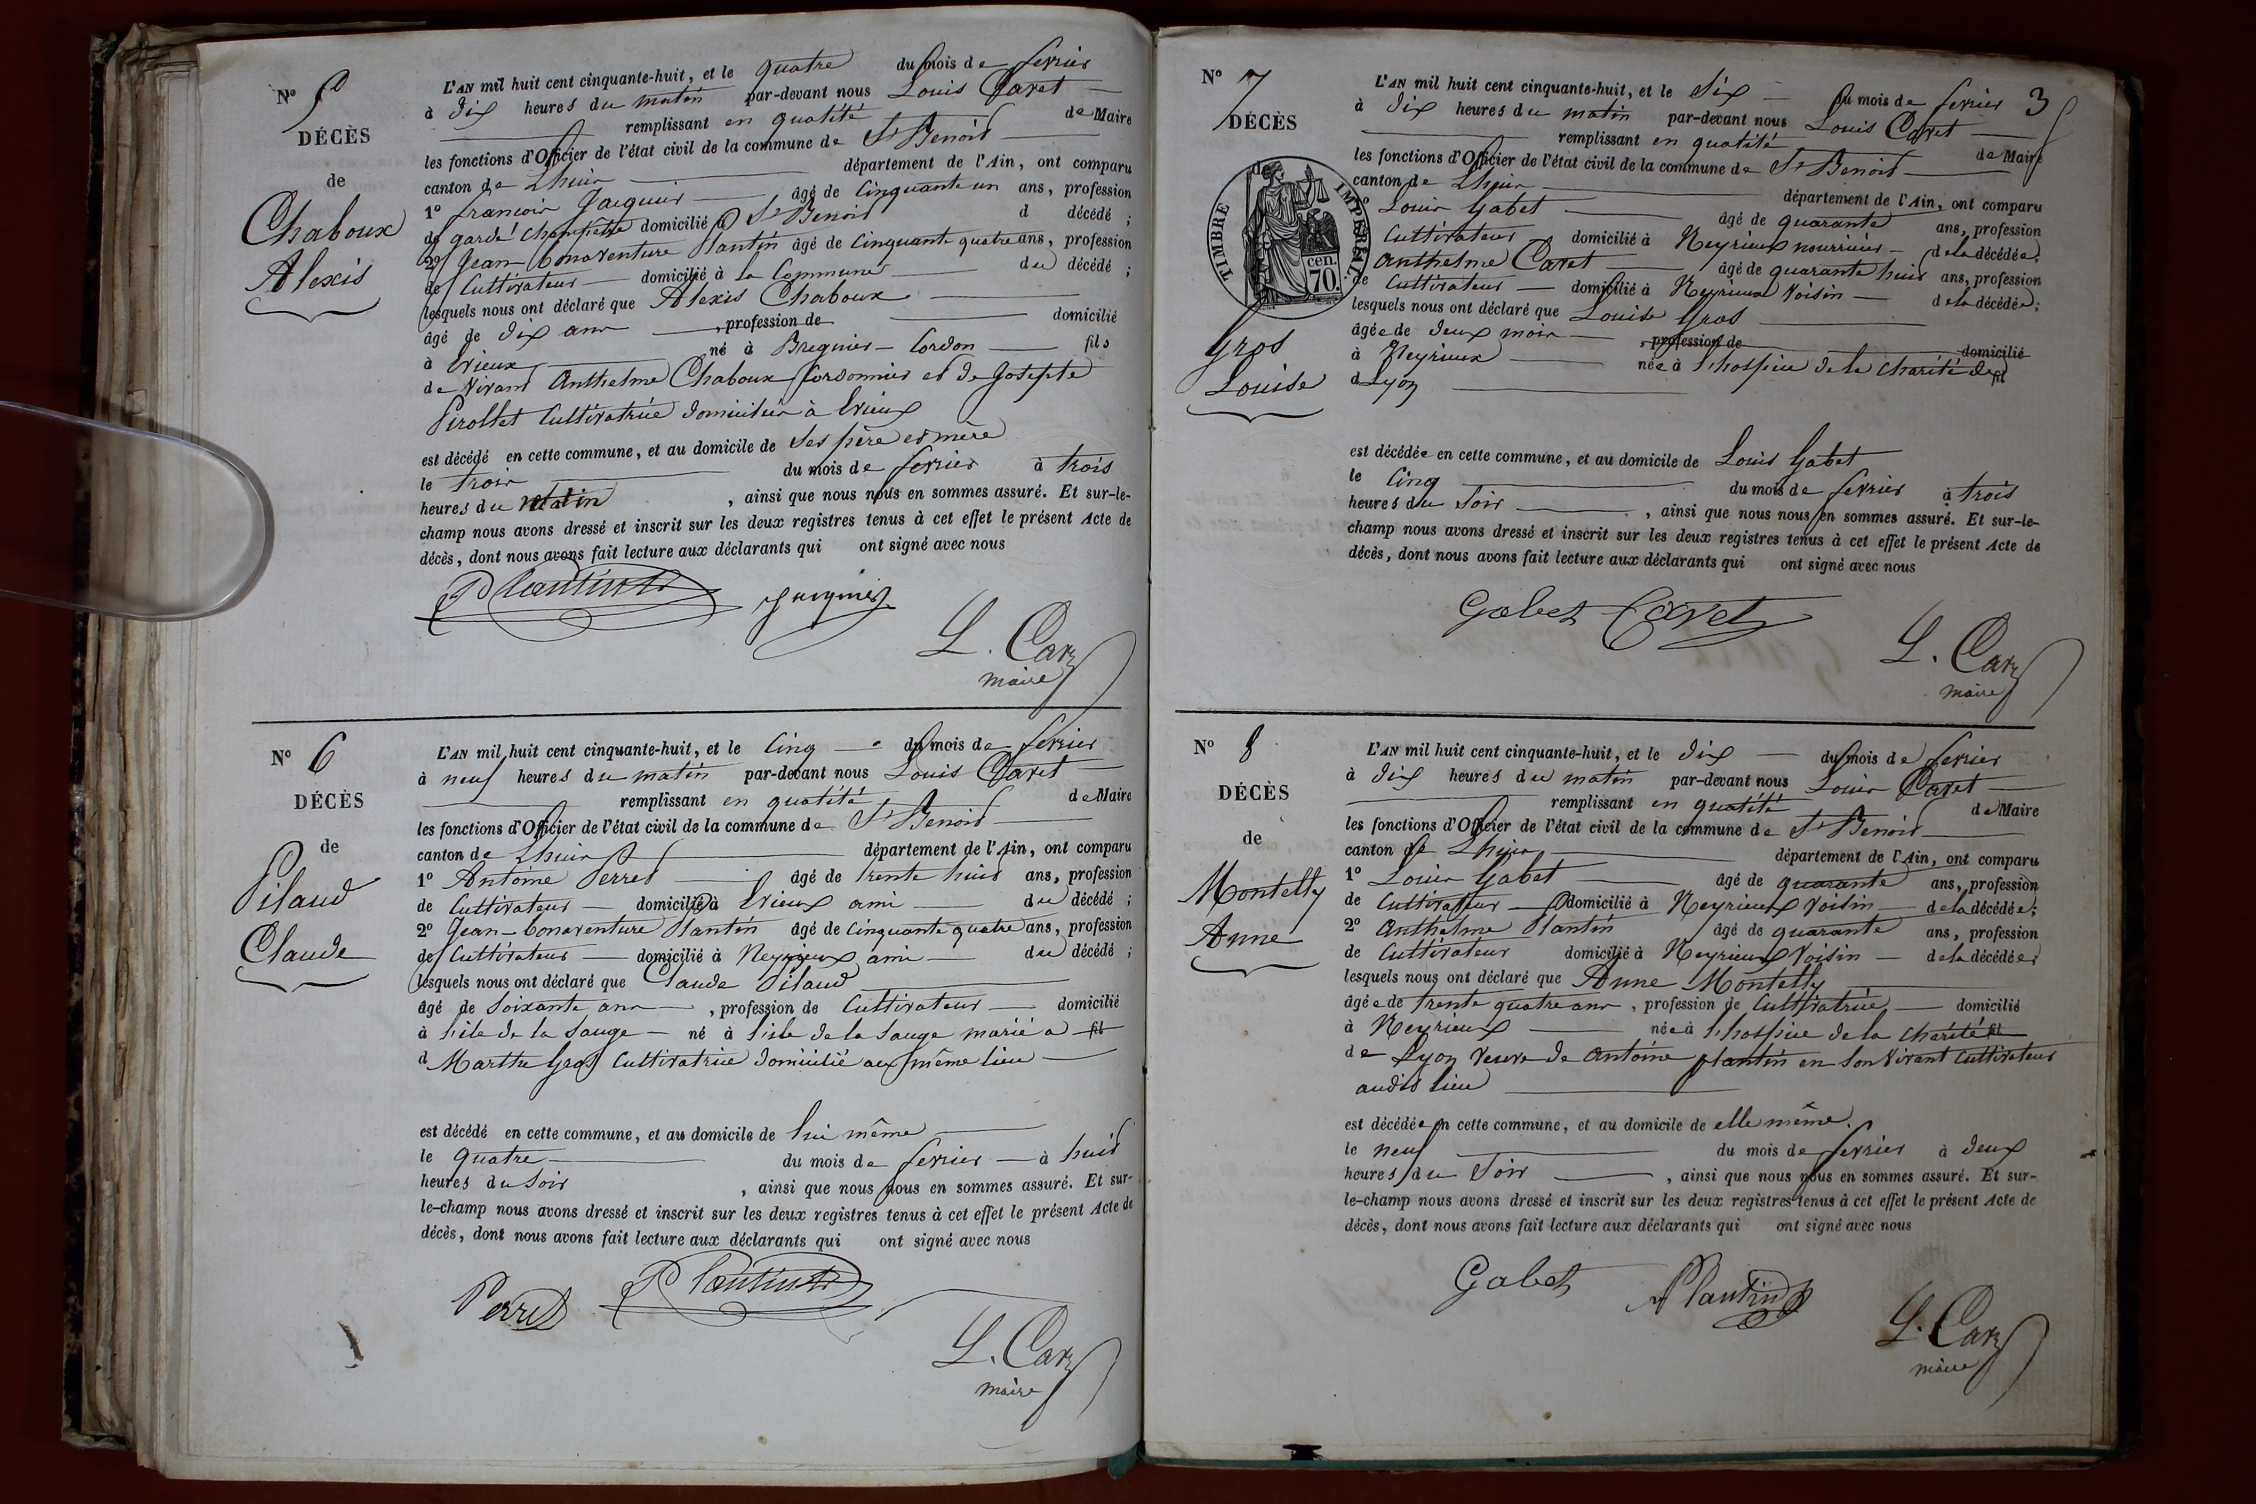 N° 5
DÉCÈS
de
Chaboux
Alexis
L'AN mil huit cent cinquante-huit, et le quatre du mois de fevrier
à dix heures du matin par-devant nous Louis Cavet
remplissant en qualité de Maire
les fonctions d'Officier de l'état civil de la commune de St Benoit
canton de Lhuis département de l'Ain, ont comparu
1° francois Jacquier âgé de cinquante un ans, profession
de garde champetre domicilié à St Benoit d décédé ;
2° Jean Bonaventure Plantin âgé de cinquante quatre ans, profession
de Cultivateur domicilié à la Commune du décédé ;
lesquels nous ont déclaré que Alexis Chaboux
âgé de dix ans , profession de domicilié
à Evieux né à Bregnier-Cordon fils
de vivant Anthelme Chaboux Cordonnier et de Josephte
Pirollet Cultivatrice domiciliés à Evieux
est décédé en cette commune, et au domicile de ses père et mère
le trois du mois de fevrier à trois
heures du matin , ainsi que nous nous en sommes assuré. Et sur-le-
champ nous avons dressé et inscrit sur les deux registres tenus à cet effet le présent Acte de
décès, dont nous avons fait lecture aux déclarants qui ont signé avec nous
Plantin Jacquier
L. Cavet
maire
N° 6
DÉCÈS
de
Pilaud
Claude
L'AN mil huit cent cinquante-huit, et le cinq du mois de fevrier
à neuf heures du matin par-devant nous Louis Cavet
remplissant en qualité de Maire
les fonctions d'Officier de l'état civil de la commune de St Benoit
canton de Lhuis département de l'Ain, ont comparu
1° Antoine Perret âgé de trente huit ans, profession
de Cultivateur domicilié à Evieux ami du décédé ;
2° Jean-Bonaventure Plantin âgé de cinquante quatre ans, profession
de Cultivateur domicilié à Neyrieux ami du décédé ;
lesquels nous ont déclaré que Claude Pilaud
âgé de soixante ans , profession de Cultivateur domicilié
à l'isle de la Sauge né à l'isle de la Sauge marié a fil
d Marthe Gros Cultivatrice domicilié aux même lieu
est décédé en cette commune, et au domicile de lui même
le quatre du mois de fevrier à huit
heures du soir , ainsi que nous nous en sommes assuré. Et sur-
le-champ nous avons dressé et inscrit sur les deux registres tenus à cet effet le présent Acte de
décès, dont nous avons fait lecture aux déclarants qui ont signé avec nous
Perret Plantin
L. Cavet
maire
3
N° 7
DÉCÈS
TIMBRE IMPÉRIAL
cen.
70.
Gros
Louise
L'AN mil huit cent cinquante-huit, et le Six du mois de fevrier
à dix heures du matin par-devant nous Louis Cavet
remplissant en qualité de Maire
les fonctions d'Officier de l'état civil de la commune de St Benoit
canton de Lhuis département de l'Ain, ont comparu
Louis Gabet âgé de quarante ans, profession
Cultivateur domicilié à Neyrieux nourricier de la décédée ;
Anthelme Cavet âgé de quarante huit ans, profession
de Cultivateur domicilié à Neyrieux voisin de la décédée ;
lesquels nous ont déclaré que Louise Gros
âgée de deux mois , profession de domicilié
à Neyrieux née à l'hospice de la charité de fil
d Lyon
est décédée en cette commune, et au domicile de Louis Gabet
le cinq du mois de fevrier à trois
heures du soir , ainsi que nous nous en sommes assuré. Et sur-le-
champ nous avons dressé et inscrit sur les deux registres tenus à cet effet le présent Acte de
décès, dont nous avons fait lecture aux déclarants qui ont signé avec nous
Gabet Cavet
L. Cavet
maire
N° 8
DÉCÈS
de
Montelly
Anne
L'AN mil huit cent cinquante-huit, et le dix du mois de fevrier
à dix heures du matin par-devant nous Louis Cavet
remplissant en qualité de Maire
les fonctions d'Officier de l'état civil de la commune de St Benoit
canton de Lhuis département de l'Ain, ont comparu
1° Louis Gabet âgé de quarante ans, profession
de Cultivateur domicilié à Neyrieux voisin de la décédée ;
2° Anthelme Plantin âgé de quarante ans, profession
de Cultivateur domicilié à Neyrieux voisin de la décédée
lesquels nous ont déclaré que Anne Montelly
âgée de trente quatre ans , profession de Cultivatrice domicilié
à Neyrieux née à l'hospice de la charité fil
de Lyon veuve de Antoine plantin en son vivant Cultivateur
audit lieu
est décédée en cette commune, et au domicile de elle même.
le neuf du mois de fevrier à deux
heures du soir , ainsi que nous nous en sommes assuré. Et sur-
le-champ nous avons dressé et inscrit sur les deux registres tenus à cet effet le présent Acte de
décès, dont nous avons fait lecture aux déclarants qui ont signé avec nous
Gabet Plantin
L. Cavet
maire